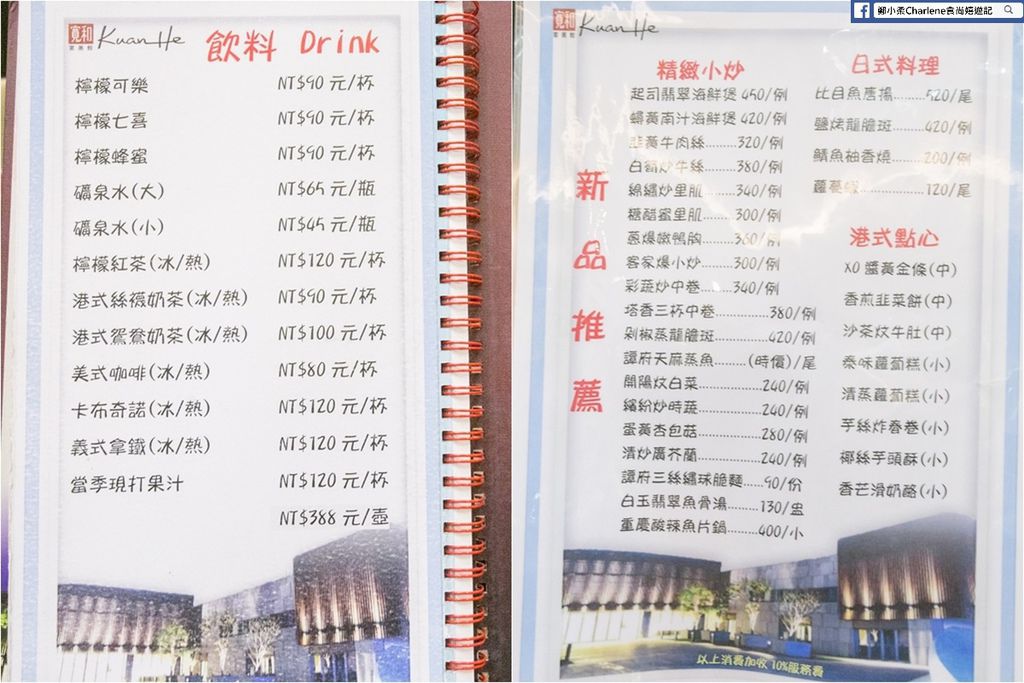 鄭小柔Charlene食尚嬉遊記
寬和
Kuan He
飲料 Drink
檸檬可樂 NT$90 元/杯
檸檬七喜 NT$90 元/杯
檸檬蜂蜜 NT$90 元/杯
礦泉水(大) NT$65 元/瓶
礦泉水(小) NT$45 元/瓶
檸檬紅茶(冰/熱) NT$120 元/杯
港式絲襪奶茶(冰/熱) NT$90 元/杯
港式鴛鴦奶茶(冰/熱) NT$100 元/杯
美式咖啡(冰/熱) NT$80 元/杯
卡布奇諾(冰/熱) NT$120 元/杯
義式拿鐵(冰/熱) NT$120 元/杯
當季現打果汁 NT$120 元/杯
NT$388 元/壺
寬和
Kuan He
新品推薦
精緻小炒
起司翡翠海鮮煲 450/例
蟳黃南汁海鮮煲 420/例
韭黃牛肉絲.........320/例
白翁炒牛絲.........380/例
錦繡炒里肌.........340/例
糖醋蜜里肌........300/例
蔥爆嫩鴨胸.........360/例
客家爆小炒.........300/例
彩蔬炒中卷.........340/例
塔香三杯中卷..............380/例
剁椒蒸龍膽斑..............420/例
譚府天麻蒸魚.......(時價)/尾
開陽炆白菜................240/例
繽紛炒時蔬................240/例
蛋黃杏包菇................280/例
清炒廣芥蘭................240/例
譚府三絲繡球脆麵......90/份
白玉翡翠魚骨湯.........130/盅
重慶酸辣魚片鍋.........400/小
日式料理
比目魚唐揚.........520/尾
鹽烤龍膽斑.........420/例
鯖魚柚香燒.........200/例
蘿蔓蝦................120/尾
港式點心
XO 醬黃金條(中)
香煎韭菜餅(中)
沙茶炆牛肚(中)
泰味蘿蔔糕(小)
清蒸蘿蔔糕(小)
芋絲炸春卷(小)
椰絲芋頭酥(小)
香芒滑奶酪(小)
以上消費加收 10%服務費